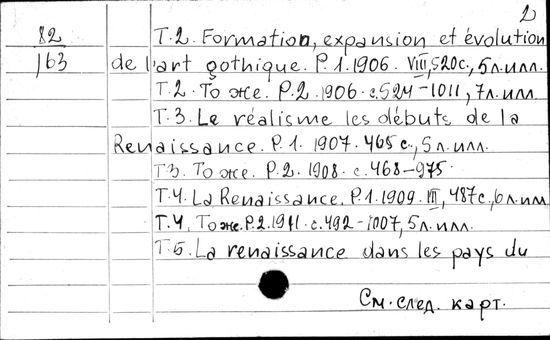 2
82 T.2. Formation, expansion et évolution
163 de l'art gothique. P.1.1906. VIII, 520с., 5л.илл.
T.2. То же. P.2.1906. с.524-1011, 7л.илл.
T.3. Le réalisme les débuts de la
Renaissance. P.1. 1907. 465 с., 5л.илл.
T.3. То же. P.2. 1908. с.468-975.
T.4. La Renaissance. P.1.1909. III, 487с., 6л.илл
T.4. То же. P.2.1911. с.492-1007, 5л.илл.
T.5. La renaissance dans les pays du
См. след. карт.